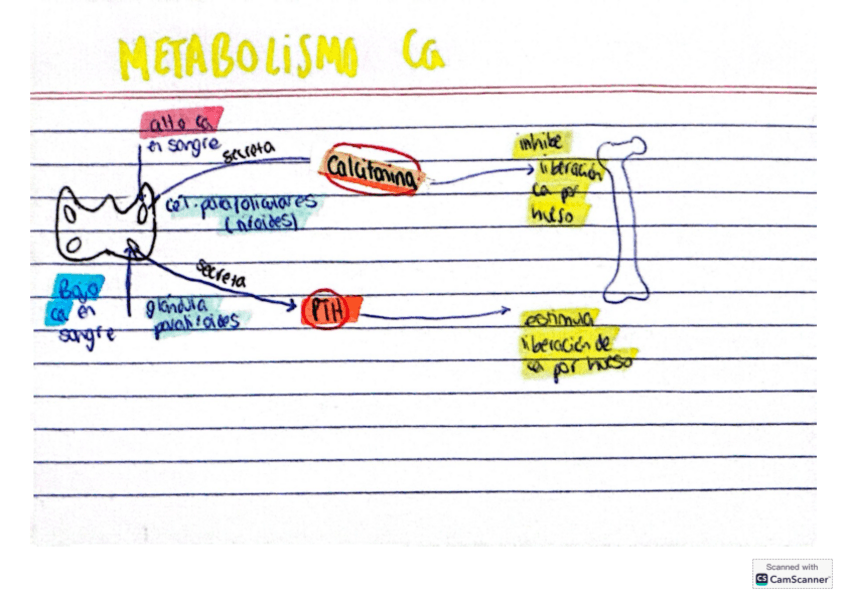 METABOLISMO Ca
alto ca
en sangre
secreta
Calcitonina
inhibe
liberación
ca por
hueso
cél. parafoliculares
(tiroides)
secreta
Bajo
ca en
sangre
glándula
paratiroides
PTH
estimula
liberación de
ca por hueso
Scanned with
CS CamScanner